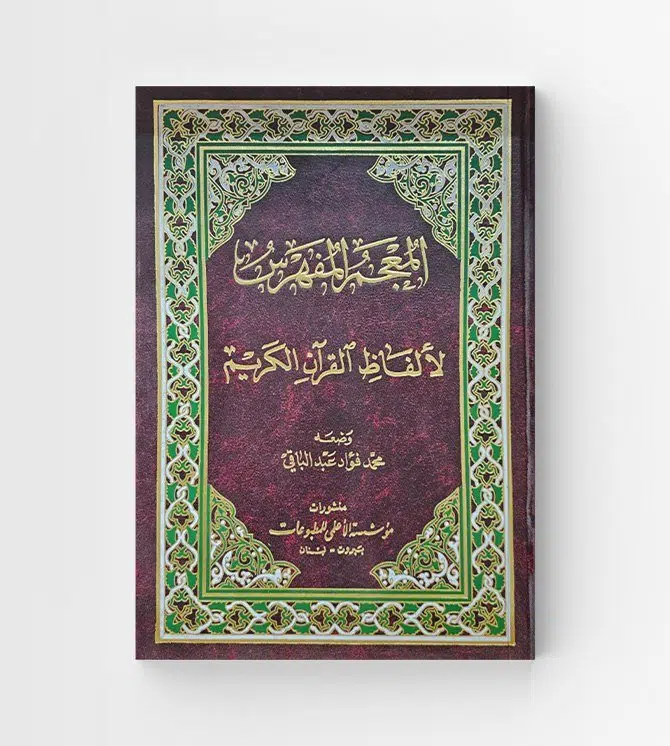 المعجم المفهرس
لألفاظ القرآن الكريم
وضعه
محمد فؤاد عبد الباقي
منشورات
مؤسسة الأعلمي للمطبوعات
بيروت - لبنان